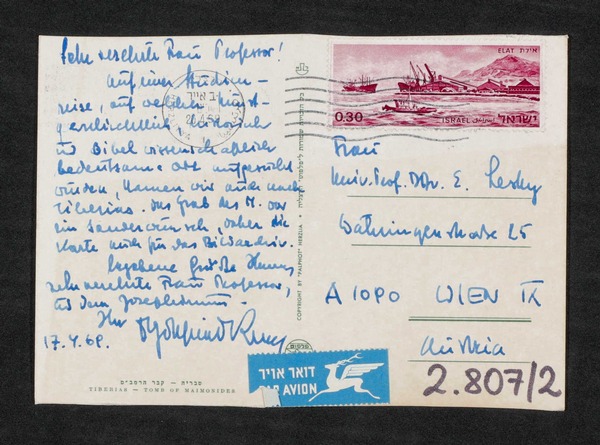 Sehr verehrte Frau Professor!
Auf einer Studien-
reise, auf welcher kunst-
geschichtlich, historisch
u Bibel wissenschaftlich
bedeutsame Orte aufgesucht
wurden, kamen wir auch nach
Tiberias. Das Grab des M. war
ein Sonderwunsch, daher die
Karte auch für das Bildarchiv.
Ergebene Grüße Ihnen,
sehr verehrte Frau Professor,
u dem Josephinum.
Ihr
17.4.69.
טבריה — קבר הרמב״ם
TIBERIAS — TOMB OF MAIMONIDES
COPYRIGHT BY "PALPHOT" HERZLIA
ELAT אילת
0.30 ISRAEL ישראל
Frau
Univ. Prof. DDr. E. Lesky
Währingerstraße 25
A 1090 WIEN IX
Austria
דואר אויר
PAR AVION
2.807/2